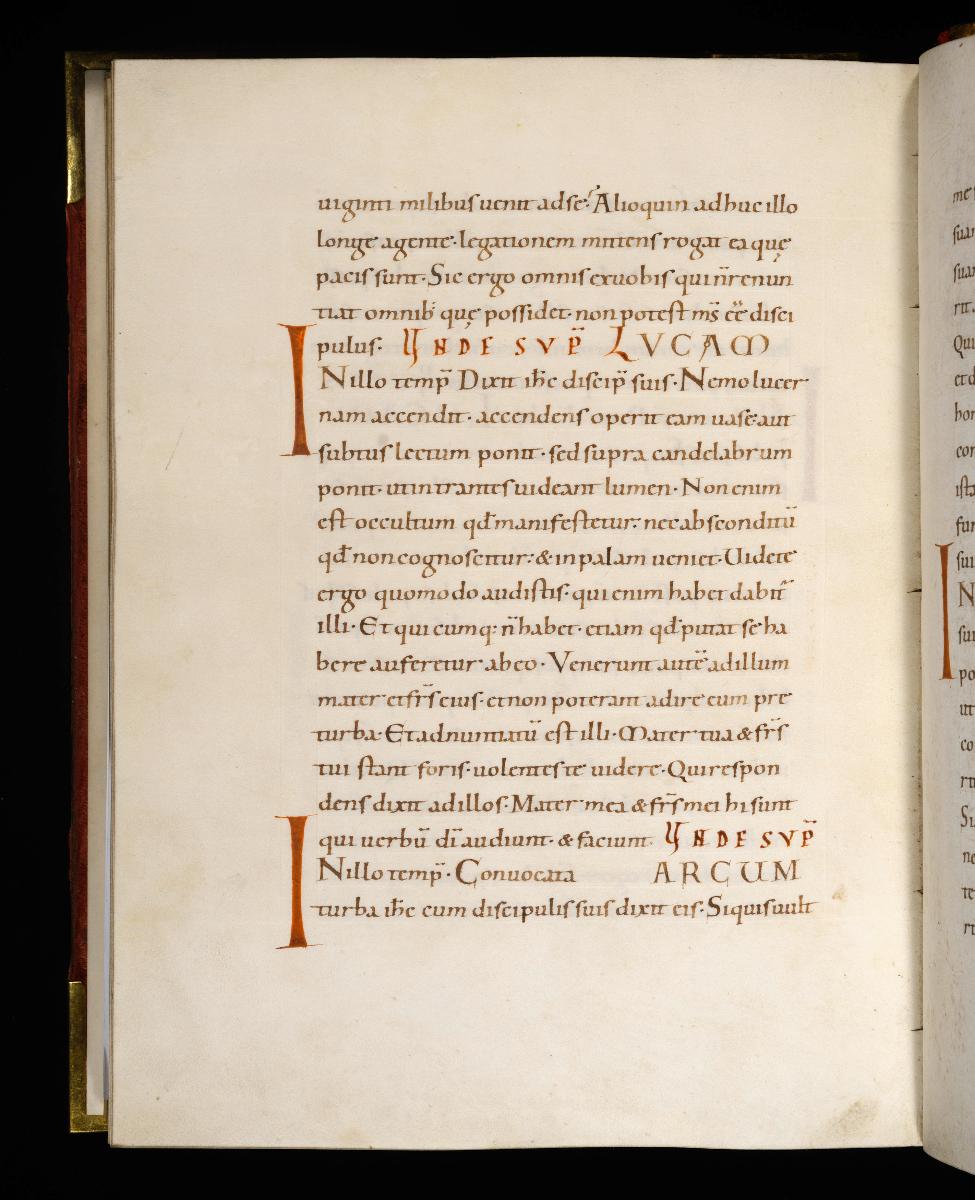 uiginti milibus uenit ad se· Alioquin adhuc illo
longe agente· legationem mittens rogat ea quę
pacis sunt· Sic ergo omnis ex uobis qui n̄ renun
tiat omnib; quę possidet· non potest m̄s eē disci
pulus· UNDE SUP̄ LUCAM
INillo temp̄ Dixit ihc̄ discip̄ suis· Nemo lucer
nam accendit· accendens operit eam uase· aut
subtus lectum ponit· sed supra candelabrum
ponit· ut intrantes uideant lumen· Non enim
est occultum qđ manifestetur· nec absconditū
qđ non cognoscitur· & in palam ueniet· Uidete
ergo quomodo audistis· qui enim habet dabit̄
illi· Et qui cumq; n̄ habet· etiam qđ putat se ha
bere auferetur ab eo· Venerunt autē ad illum
mater et fr̄s eius· et non poterant adire eum pre
turba· Et adnuntiatū est illi· Mater tua & fr̄s
tui stant foris· uolentes te uidere· Qui respon
dens dixit ad illos· Mater mea & fr̄s mei hi sunt
qui uerbū dī audiunt· & faciunt· UNDE SUP̄
INillo temp̄· Conuocata ARCUM
turba ihc̄ cum discipulis suis dixit eis· Si quis uult